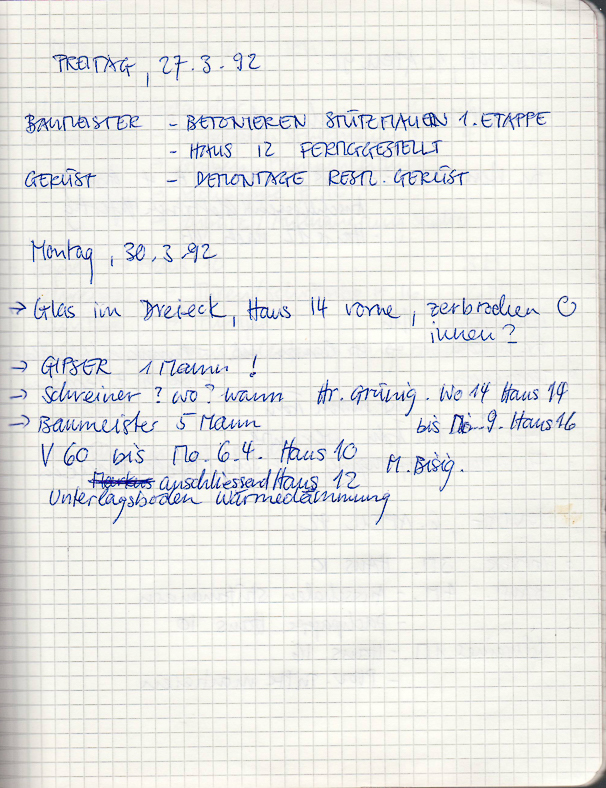 FREITAG, 27.3.92
BAUMEISTER - BETONIEREN STÜTZMAUERN 1. ETAPPE
- HAUS 12 FERTIGGESTELLT
GERÜST - DEMONTAGE RESTL. GERÜST
Montag, 30.3.92
→ Glas im Dreieck, Haus 14 vorne, zerbrochen
innen?
→ GIPSER 1 Mann!
→ Schreiner? wo? wann Hr. Grünig. Wo 14 Haus 14
→ Baumeister 5 Mann bis 9. Haus 16
V 60 bis Mo. 6.4. Haus 10 M. Bisig.
anschliessend Haus 12
Unterlagsboden Wärmedämmung